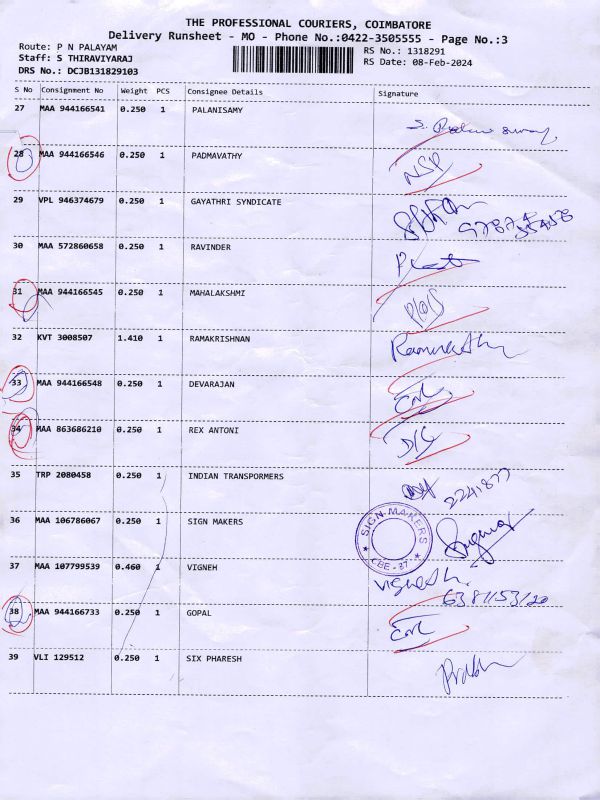 THE PROFESSIONAL COURIERS, COIMBATORE
Delivery Runsheet - MO - Phone No.:0422-3505555 - Page No.:3
Route: P N PALAYAM
Staff: S THIRAVIYARAJ
DRS No.: DCJB131829103
RS No.: 1318291
RS Date: 08-Feb-2024
S No Consignment No Weight PCS Consignee Details Signature
27 MAA 944166541 0.250 1 PALANISAMY
28 MAA 944166546 0.250 1 PADMAVATHY NSP
29 VPL 946374679 0.250 1 GAYATHRI SYNDICATE
30 MAA 572860658 0.250 1 RAVINDER
31 MAA 944166545 0.250 1 MAHALAKSHMI
32 KVT 3008507 1.410 1 RAMAKRISHNAN
33 MAA 944166548 0.250 1 DEVARAJAN
34 MAA 863686210 0.250 1 REX ANTONI
35 TRP 2080458 0.250 1 INDIAN TRANSPORMERS 2241877
36 MAA 106786067 0.250 1 SIGN MAKERS SIGN MAKERS CBE - 37
37 MAA 107799539 0.460 1 VIGNEH Vignesh.
38 MAA 944166733 0.250 1 GOPAL
39 VLI 129512 0.250 1 SIX PHARESH